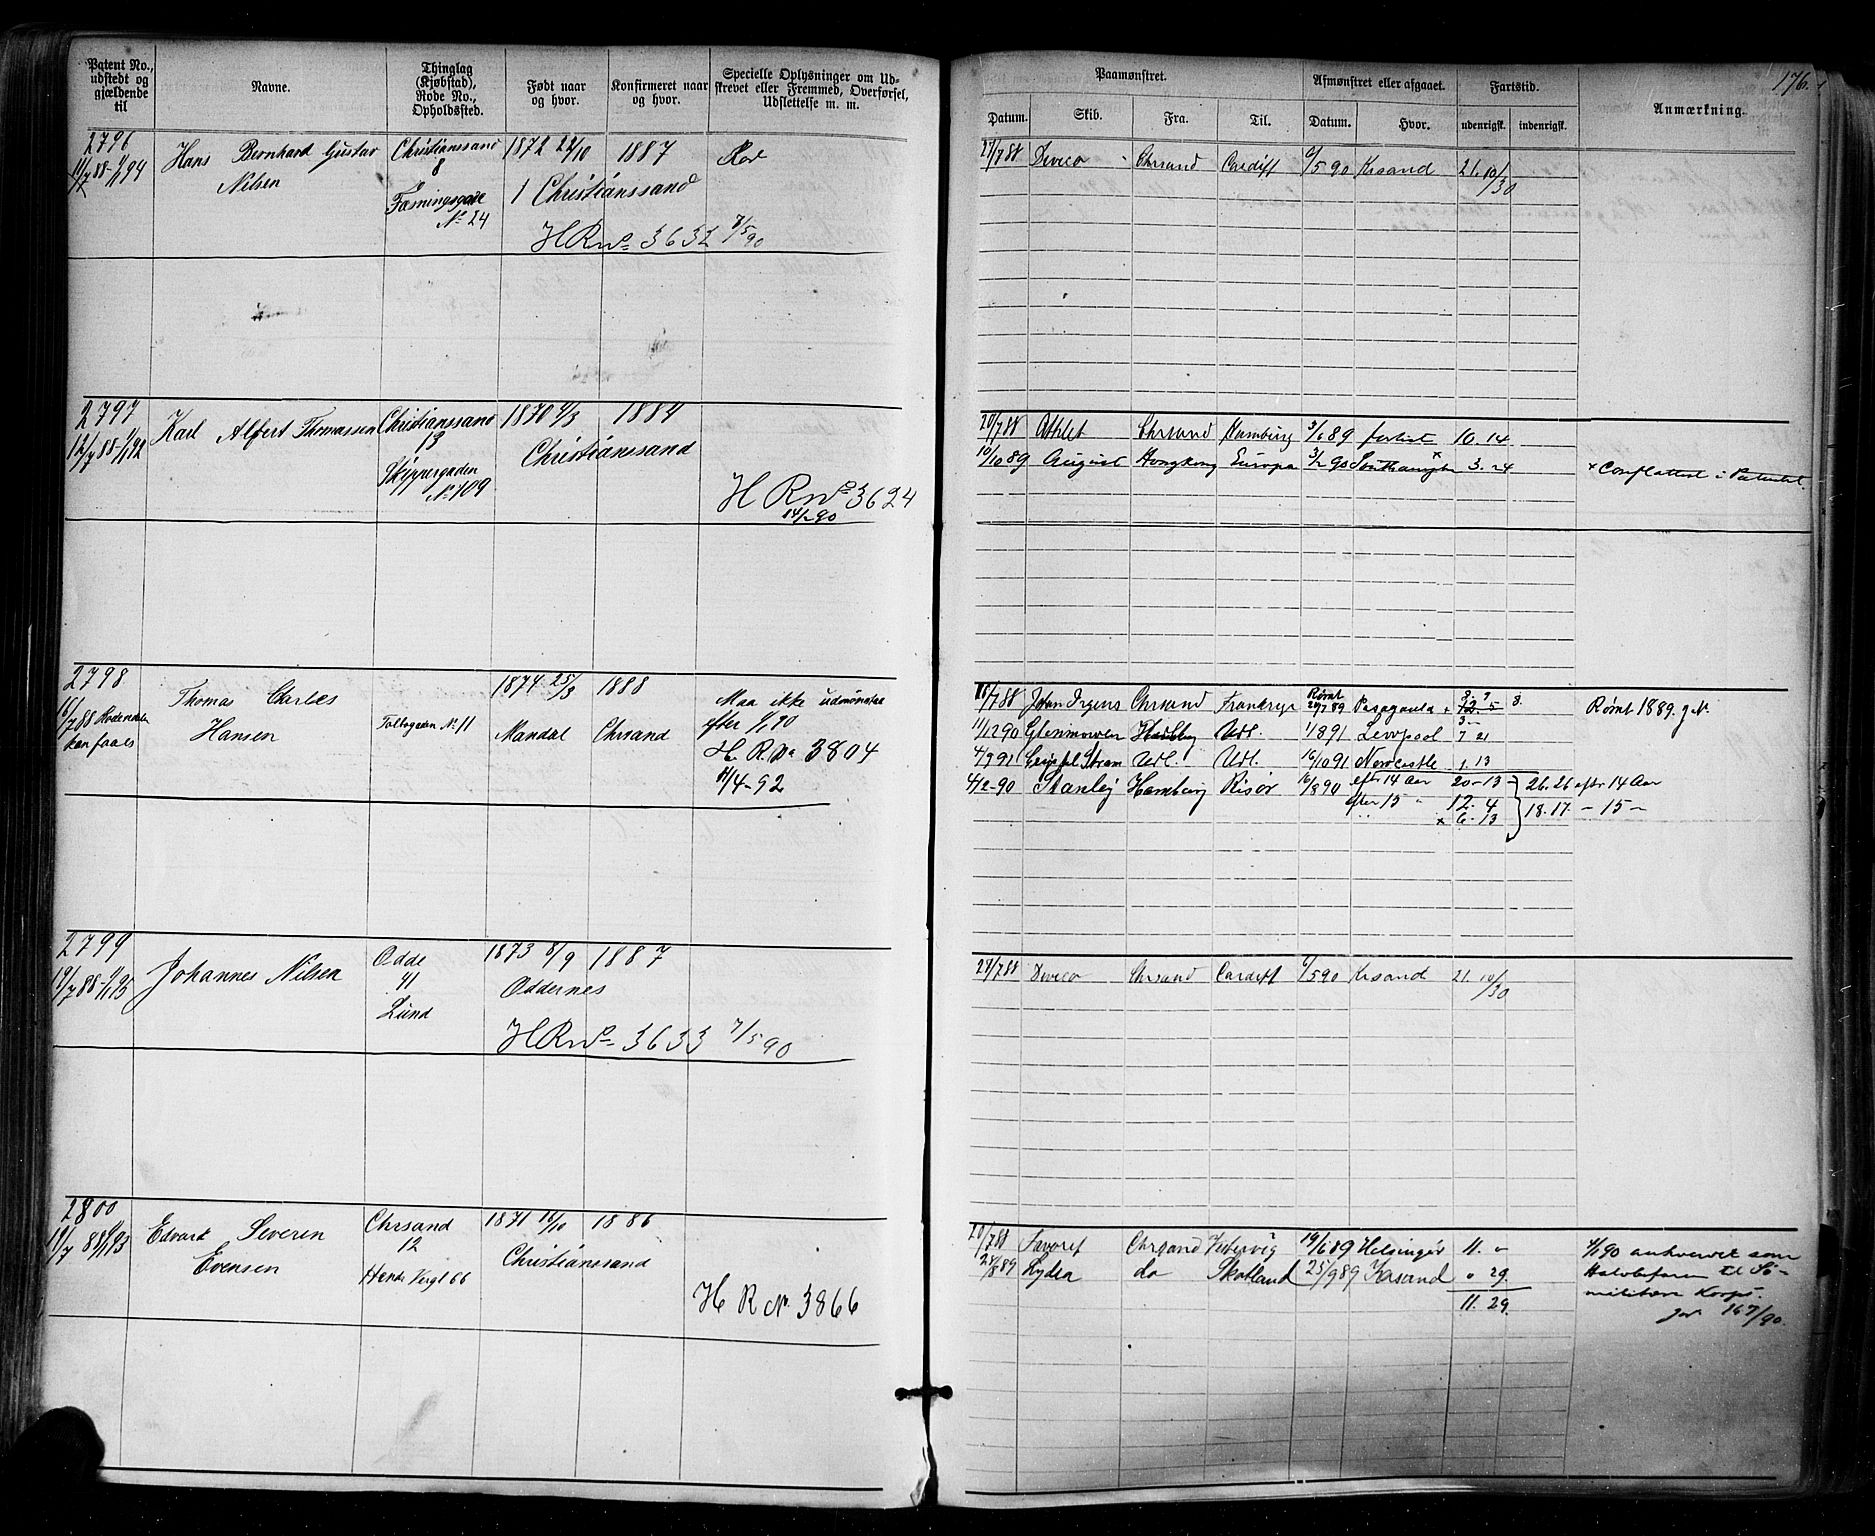 Patent No., udstedt og gjældende til
Navne.
Thinglag (Kjøbstad), Rode No., Opholdssted.
Født naar og hvor.
Konfirmeret naar og hvor.
Specielle Oplysninger om Udskrevet eller Fremmed, Overførsel, Udslettelse m. m.
Paamønstret.
Afmønstret eller afgaaet.
Fartstid.
Anmærkning.
176.
Datum.
Skib.
Fra.
Til.
Datum.
Hvor.
udenrigsk.
indenrigsk.
2796
11/7 88-1/1 94
Hans Bernhard Gustav
Nilsen
Christianssand
8
No 24
1872 22/10
1887
1 Christianssand
HRNo 3632 7/5 90
27/7 88 Chrsand Cardiff 6/5 90 Krsand 21. 10/30
2797
12/7 88-1/1 92
Karl Alfert Thomassen
Christianssand
13
Skippergaden
No 109
1870 4/3
1884
Christianssand
HRNo 3624
14/2 90
20/7 88 Athlet Chrsand Hamburg 3/6 89 forlist 10. 14
10/10 89 August Hongkong Europa 3/2 90 Southampton 3. 24
2798
16/7 88
Thomas Charles
Hansen
Tolbogaden No 11
1874 25/3
1888
Mandal
Chrsand
Maa ikke udmønstres
efter 1/1 90
H. R. No 3804
11/4-92
16/7 88 Johan Irgens Chrsand Rømt 29/7 89 Pasagoula
Rømt 1889. g.N.
11/12 90 Udl. 1/8 91 Leverpool 7 21
4/9 91 Udl. Udl. 16/10 91 Newcastle 1. 13
4/2-90 Stanley Hamburg Risør 16/8 90 eft. 14 Aar 20-13
26. 26 eftr 14 Aar
efter 15 " 12. 4
18. 17. - 15 -
x 6. 13
2799
19/7 88-1/1 95
Johannes Nilsen
Odde
41
Lund
1873 8/9
1887
Oddernes
HRNo 3633 7/5 90
27/7 88 Chrsand Cardiff 6/5 90 Krsand 21. 10/30
2800
19/7 88 1/1 93
Edvard Severin
Evensen
Chrsand
12
Henr. Vergl 66
1871 16/10
1886
Christianssand
H R No 3866
20/7 88 Favorit Chrsand Vestervig 19/6 89 Helsingør 11. "
25/8 89 Lydia do Skotland 25/9 89 Krsand " 29.
11. 29.
som
til Sø-
militære Korps.
jnr 167/90.